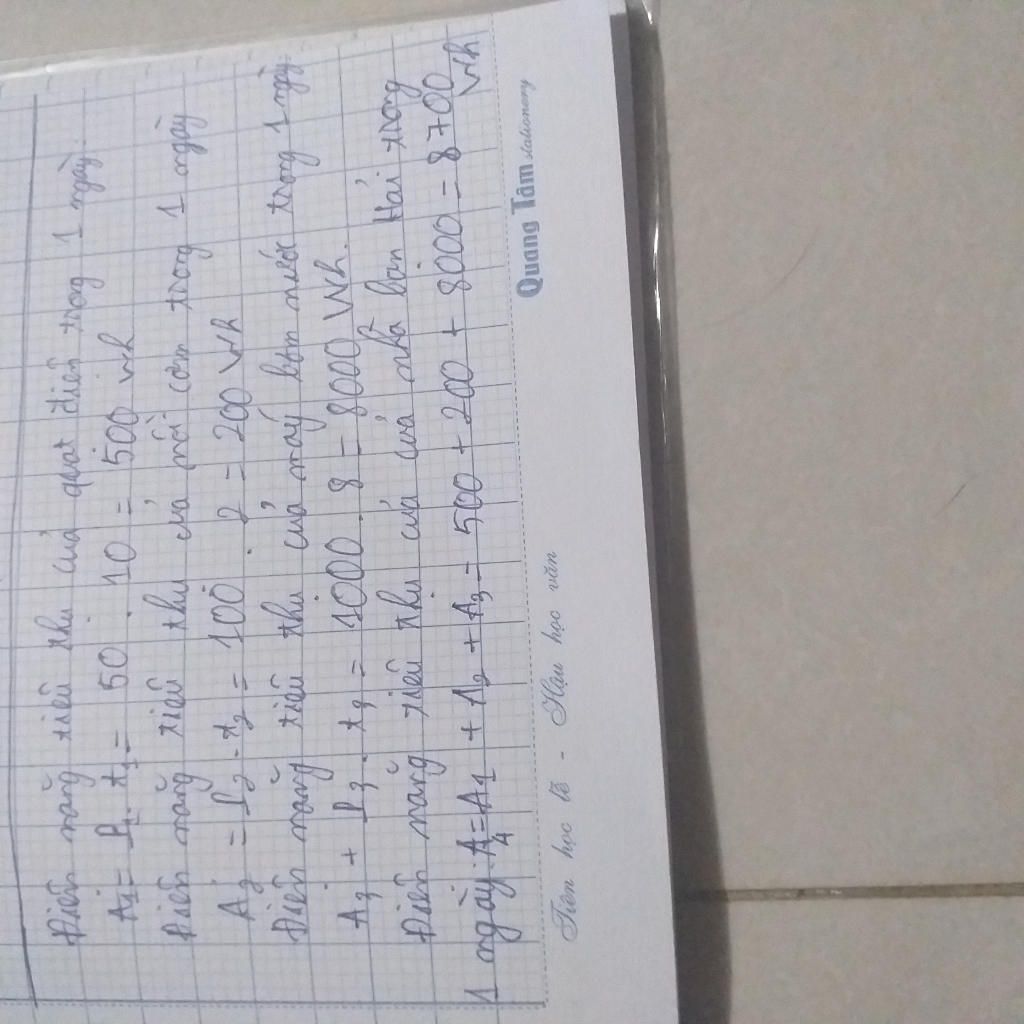 Điện năng tiêu thụ của quạt điện trong 1 ngày.
A₁ = P₁ . t₁ = 50 . 10 = 500 Wh
Điện năng tiêu thụ của nồi cơm trong 1 ngày
A₂ = P₂ . t₂ = 100 . 2 = 200 Wh
Điện năng tiêu thụ của máy bơm nước trong 1 ngày
A₃ + P₃ . t₃ = 1000 . 8 = 8000 Wh.
Điện năng tiêu thụ của của nhà bạn Hải trong
1 ngày: A₄ = A₁ + A₂ + A₃ = 500 + 200 + 8000 = 8700 Wh
Tiên học lễ - Hậu học văn
Quang Tâm stationery